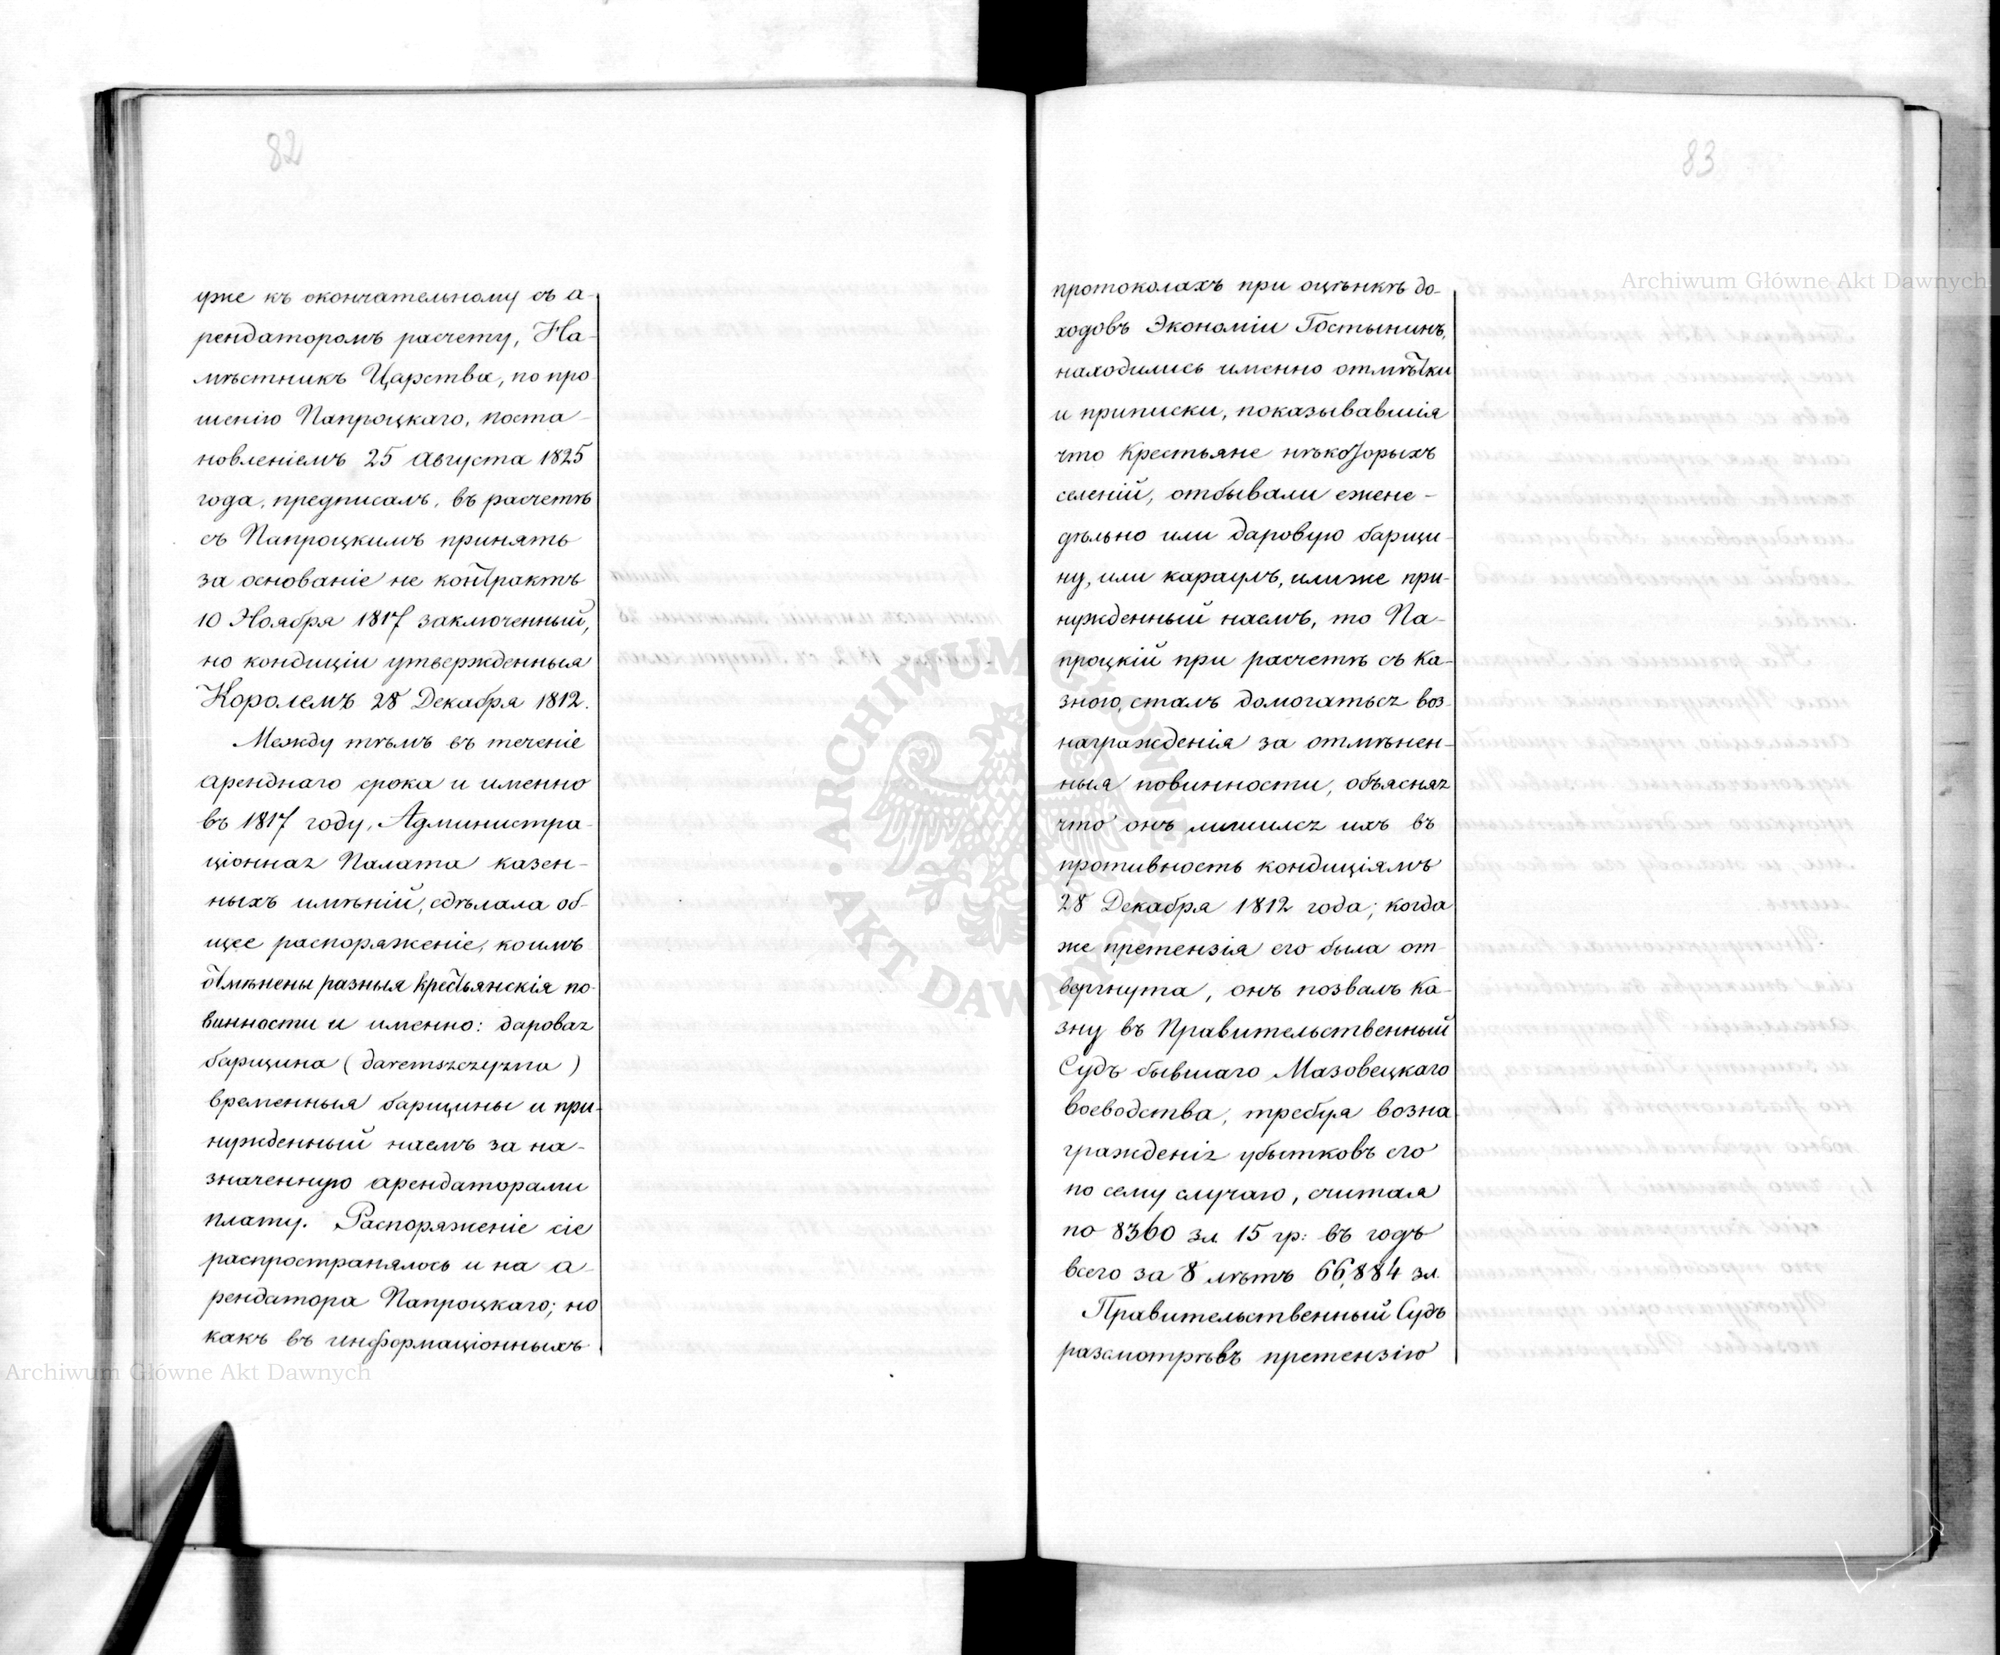 82
уже къ окончательному съ а-
рендаторомъ расчету, На-
мѣстникъ Царства, по про
шенію Папроцкаго, поста-
новленіемъ 25 Августа 1825
года, предписалъ, въ расчетѣ
съ Папроцкимъ принять
за основаніе не контрактъ
10 Ноября 1817 заключенный,
но кондиціи утвержденныя
Королемъ 28 Декабря 1812.
Между тѣмъ въ теченіе
аренднаго срока и именно
въ 1817 году, Администра-
ціонная Палата казен-
ныхъ имѣній, сдѣлала об-
щее распоряженіе, коимъ
отмѣнены разныя крестьянскія по-
винности и именно: даровая
барщина (daremszczyzna)
временныя барщины и при-
нужденный наемъ за на-
значенную арендаторами
плату. Распоряженіе сіе
распространялось и на а-
рендатора Папроцкаго; но
какъ въ информаціонныхъ
83
протоколахъ при оцѣнкѣ до-
ходовъ Экономіи Гостынинъ,
находились именно отмѣтки
и приписки, показывавшія
что крестьяне нѣкоторыхъ
селеній, отбывали ежене-
дѣльно или даровую барщи-
ну, или караулъ, или же при-
нужденный наемъ, то Па-
процкій при расчетѣ съ Ка-
зною, сталъ домогаться воз-
награжденія за отмѣнен-
ныя повинности, объясняя
что онъ лишился ихъ въ
противность кондиціямъ
28 Декабря 1812 года; когда
же претензія его была от-
вергнута, онъ позвалъ Ка-
зну въ Правительственный
Судъ бывшаго Мазовецкаго
воеводства, требуя возна-
гражденія убытковъ его
по сему случаю, считая
по 8360 зл 15 гр: въ годъ
всего за 8 лѣтъ 66,884 зл.
Правительственный Судъ
разсмотрѣвъ претензію
Archiwum Główne Akt Dawnych
Archiwum Główne Akt Dawnych
ARCHIWUM GŁÓWNE AKT DAWNYCH